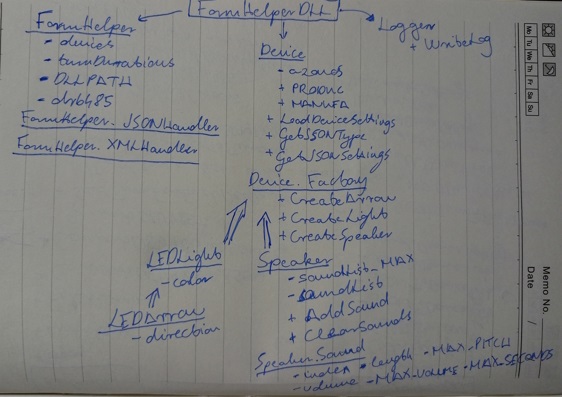 FormHelperDLL
FormHelper
- devices
- turnDurations
- DLLPATH
- drb485
FormHelper.JSONHandler
FormHelper.XMLHandler
Logger
+ WriteLog
Device
+ PRODUC
+ MANUFA
+ LoadDeviceSettings
+ GetJSONType
+ GetJSONSettings
Device.Factory
+ CreateArrow
+ CreateLight
+ CreateSpeaker
LEDLight
- color
LEDArrow
- direction
Speaker
- soundList_MAX
- soundList
+ AddSound
+ ClearSounds
Speaker.Sound
- index - length - MAX_PITCH
- volume - MAX_VOLUME - MAX_SECONDS
Memo No.
Date /
Mo Tu We Th Fr Sa Su